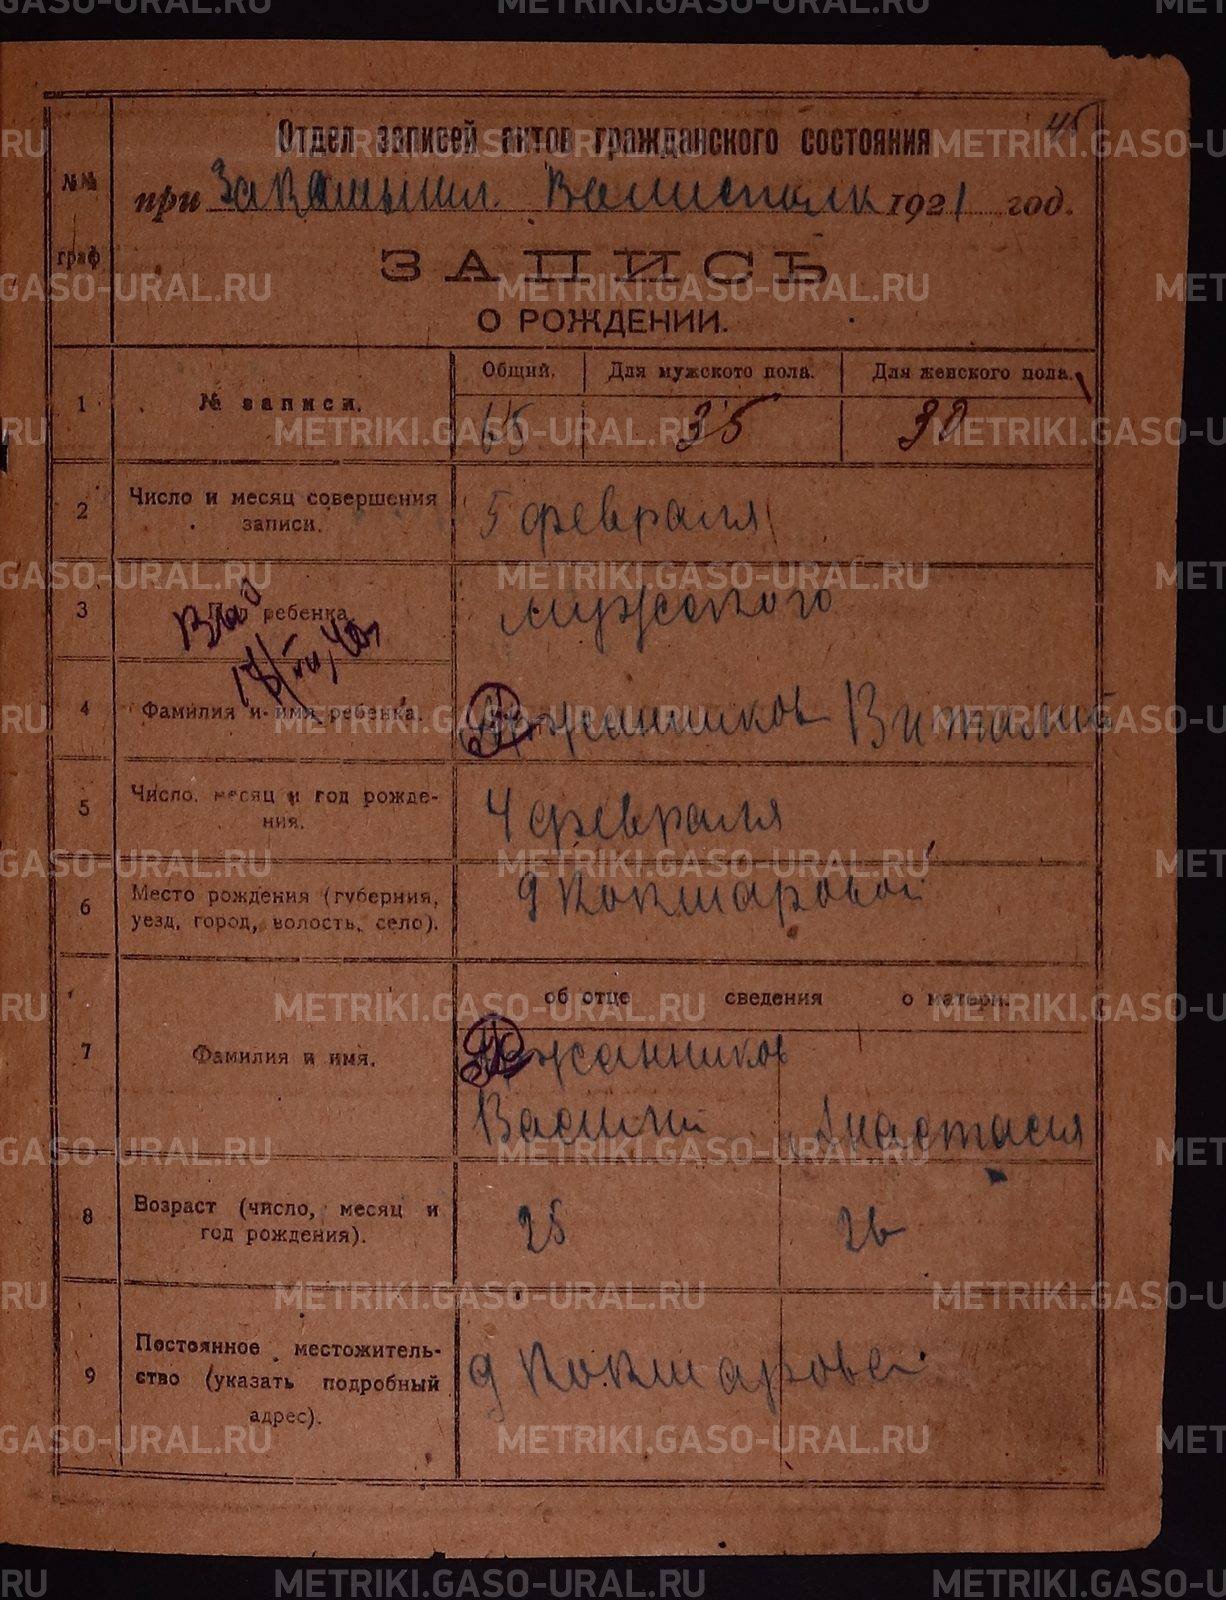 45
Отдел записей актов гражданского состояния
№№ граф
при Закамышл. Волисполк 1921 год.
ЗАПИСЬ
О РОЖДЕНИИ.
Общий. Для мужского пола. Для женского пола.
1 № записи. 65 35 30
2 Число и месяц совершения записи. 5 февраля
3 Пол ребенка мужского
4 Фамилия и имя ребенка. Виталий
5 Число, месяц и год рождения. 4 февраля
6 Место рождения (губерния, уезд, город, волость, село). д Кокшаровой
об отце сведения о матери.
7 Фамилия и имя.
Василий Анастасия
8 Возраст (число, месяц и год рождения). 25 26
9 Постоянное местожительство (указать подробный адрес). д Кокшаровой
METRIKI.GASO-URAL.RU